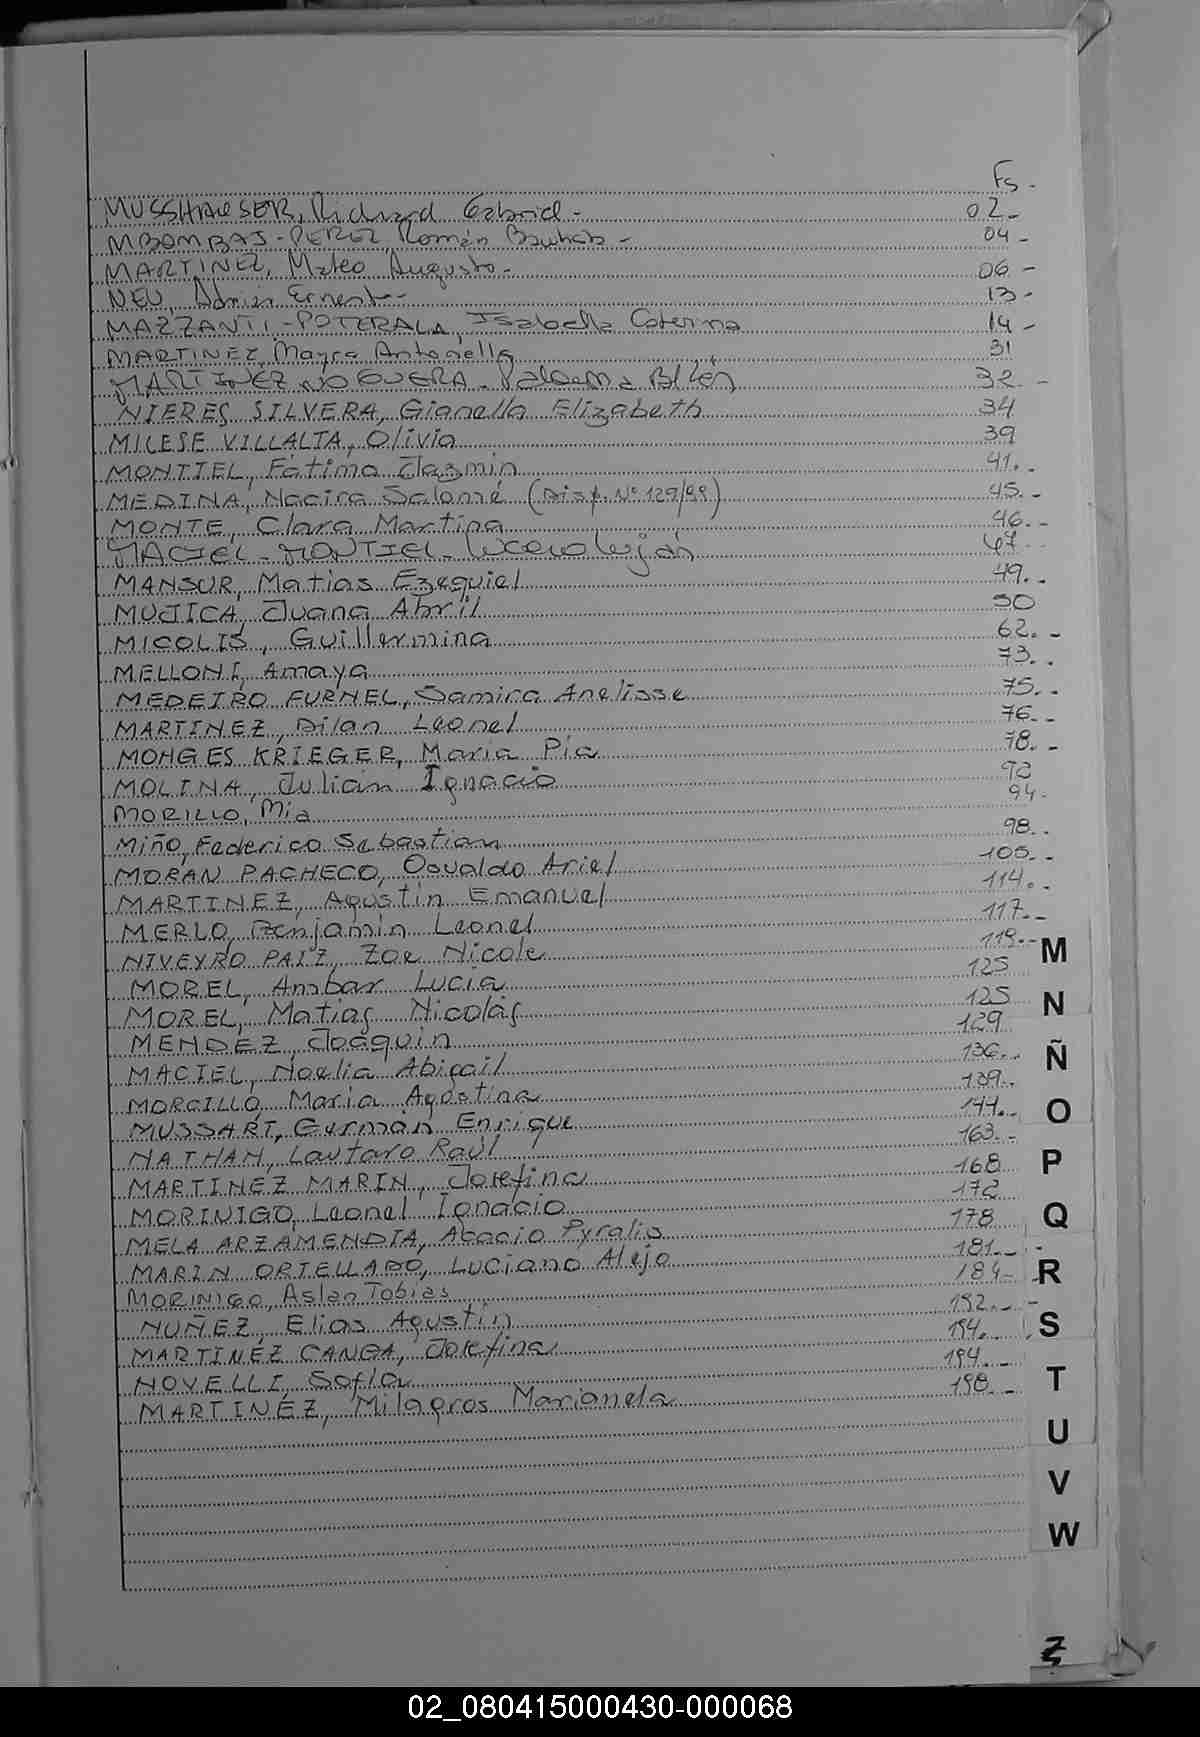 Fs.
MUSSHAUSER, Richard Gabriel - 02-
MBOMBAJ - PEREZ, Román Bautista - 04-
MARTINEZ, Mateo Augusto - 06-
NEU, Adrián Ernesto - 13-
MAZZANTI - POTERALA, Isabella Caterina 14-
MARTINEZ, Mayra Antonella 31
MARTINEZ NOGUERA - Paloma Belén 32.-
NIERES SILVERA, Gianella Elizabeth 34
MILESE VILLALTA, Olivia 39
MONTIEL, Fátima Jazmín 41.-
MEDINA, Nacira Salomé (Disp. Nº 129/99) 45.-
MONTE, Clara Martina 46.-
MACIEL - MONTIEL - Luján 47.-
MANSUR, Matias Ezequiel 49.-
MUJICA, Juana Abril 50
MICOLIS, Guillermina 62.-
MELLONI, Amaya 73.-
MEDEIRO FURNEL, Samira Anelisse 75.-
MARTINEZ, Dilan Leonel 76.-
MONGES KRIEGER, Maria Pia 78.-
MOLINA, Julián Ignacio 92
MORILLO, Mia 94-
Miño, Federico Sebastian 98.-
MORAN PACHECO, Osvaldo Ariel 105.-
MARTINEZ, Agustín Emanuel 114.-
MERLO, Benjamín Leonel 117.-
NIVEYRO PAIZ, Zoe Nicole 119.-
MOREL, Ambar Lucia 125
MOREL, Matias Nicolás 125
MENDEZ, Joaquin 129
MACIEL, Noelia Abigail 136.-
MORCILLO, Maria Agostina 139.-
MUSSART, Germán Enrique 144.-
NATHAN, Lautaro Raúl 163.-
MARTINEZ MARIN, Josefina 168
MORINIGO, Leonel Ignacio 172
MELA ARZAMENDIA, Acacio Pyralis 178
MARIN ORTELLADO, Luciano Alejo 181.-
MORINIGO, Aslan Tobias 184-
NUÑEZ, Elias Agustín 192.-
MARTINEZ CANGA, Josefina 194.
NOVELLI, Sofia 194.-
MARTINEZ, Milagros Marianela 198.-
M
N
Ñ
O
P
Q
R
S
T
U
V
W
Z
02_080415000430-000068